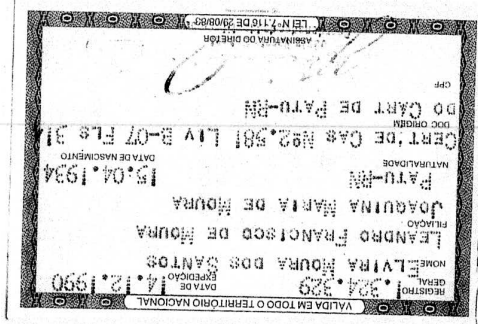 VALIDA EM TODO O TERRITÓRIO NACIONAL
REGISTRO GERAL 1.324.329 DATA DE EXPEDIÇÃO 14.12.0990
NOME ELVIRA MOURA DOS SANTOS
FILIAÇÃO
LEANDRO FRANCISCO DE MOURA
JOAQUINA MARIA DE MOURA
NATURALIDADE PATU-RN DATA DE NASCIMENTO 15.04.1934
DOC ORIGEM CERT. DE CAS Nº2.581 LIV B-07 FLS 314
DO CART DE PATU-RN
CPF
ASSINATURA DO DIRETOR
LEI Nº 7.116 DE 29/08/83